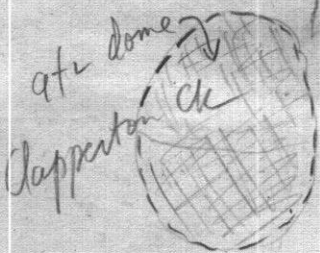 qtz dome
Clapperton Ck